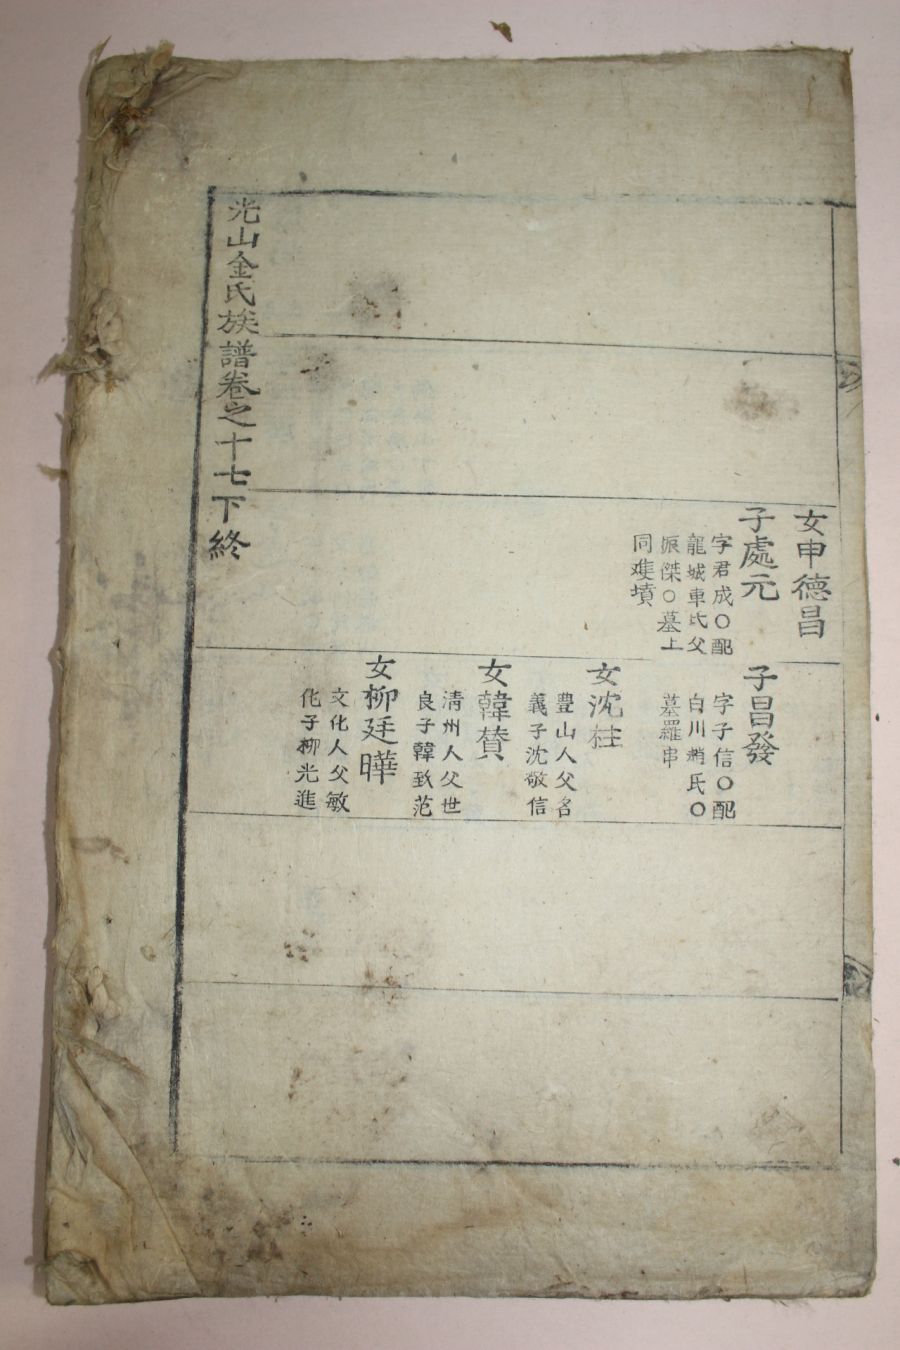 女申德昌
子處元
字君成〇配
龍城車氏父
振傑〇墓上
同雙墳
子昌發
字子信〇配
白川趙氏〇
墓羅串
女沈柱
豊山人父名
義子沈敬信
女韓賛
淸州人父世
良子韓致范
女柳廷曄
文化人父敏
化子柳光進
光山金氏族譜卷之十七下終